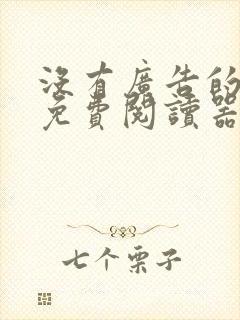 沒有廣告的
免費閱讀器
七个栗子